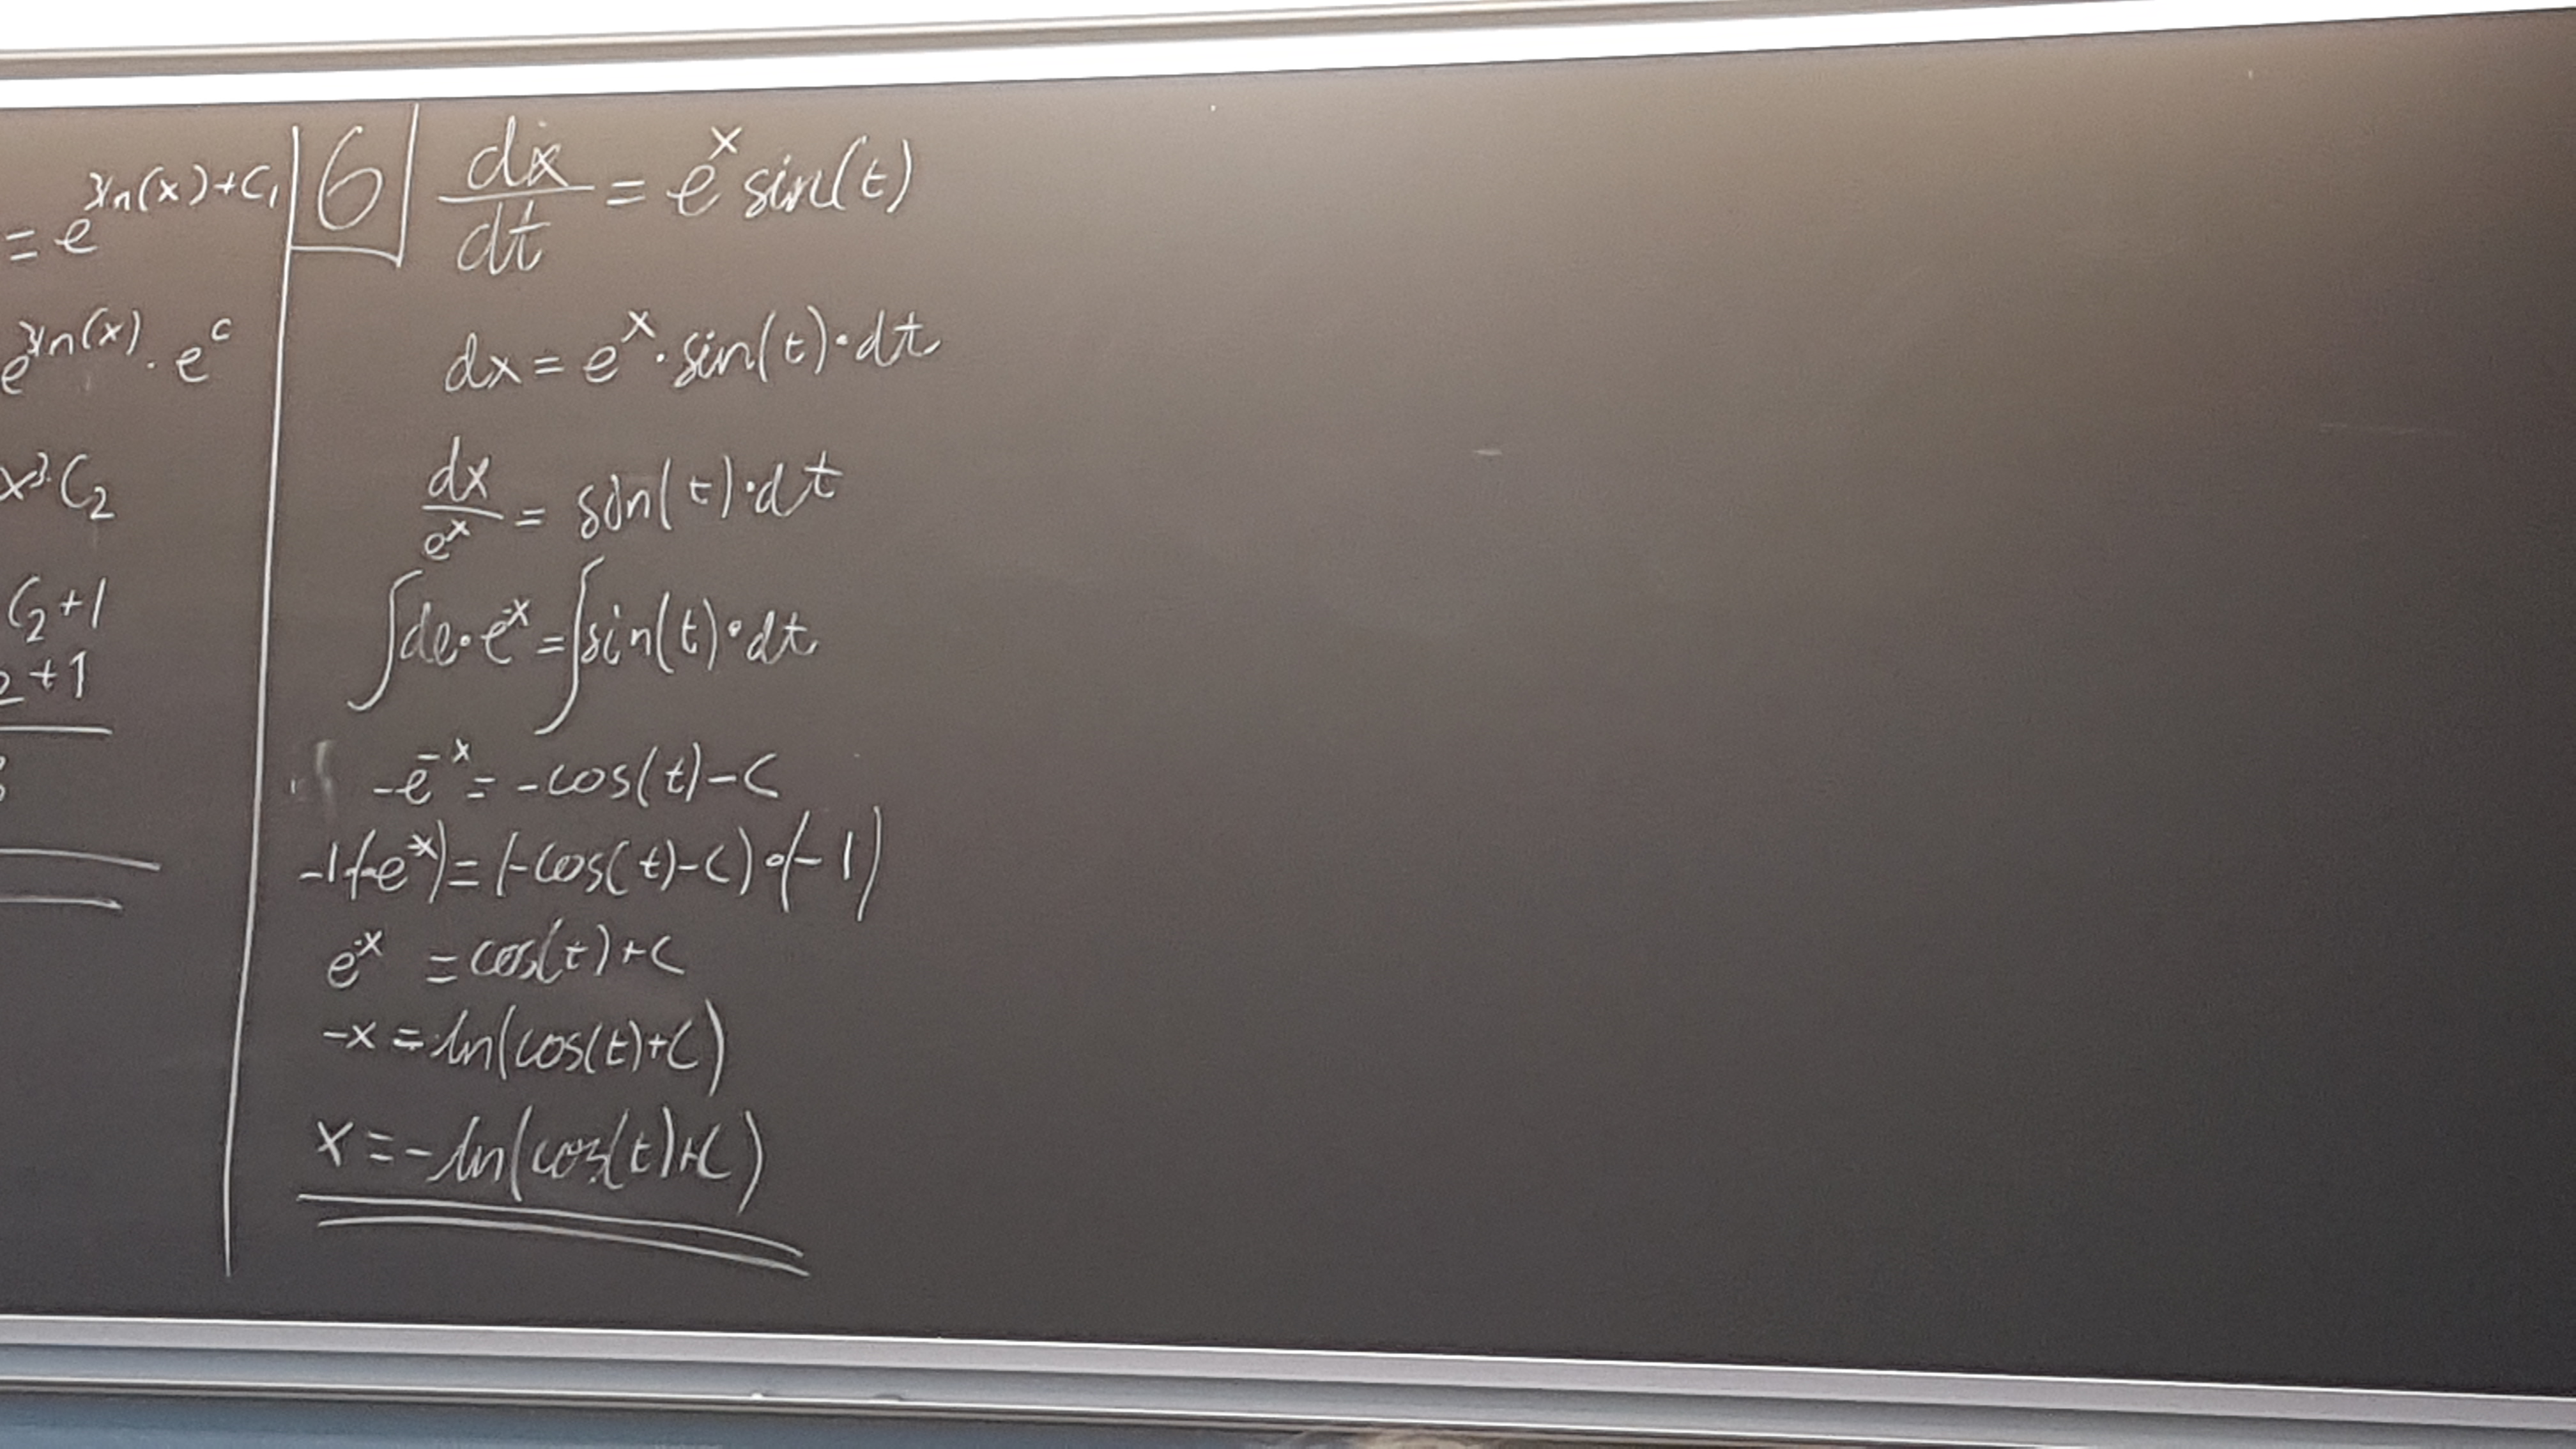 = e^{3ln(x)+C₁}
e^{3ln(x)} · e^c
x³·C₂
C₂+1
2+1
6 dx/dt = e^x sin(t)
dx = e^x · sin(t) · dt
dx/e^x = sin(t) · dt
∫de·e^{-x} = ∫sin(t)·dt
-e^{-x} = -cos(t)-C
-1·(-e^{-x}) = (-cos(t)-C)·(-1)
e^{-x} = cos(t)+C
-x = ln(cos(t)+C)
x = -ln(cos(t)+C)